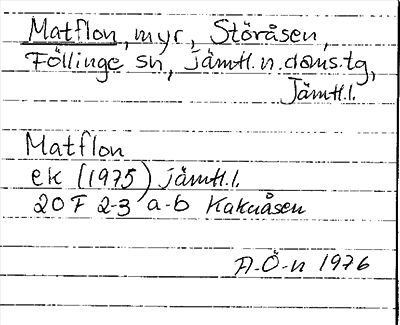 Matflon, myr, Störåsen,
Föllinge sn, jämtl. n. doms.tg,
Jämtl. l.
Matflon
ek (1975) jämtl. l.
20 F 2-3 a-b Kakuåsen
A-Ö-n 1976